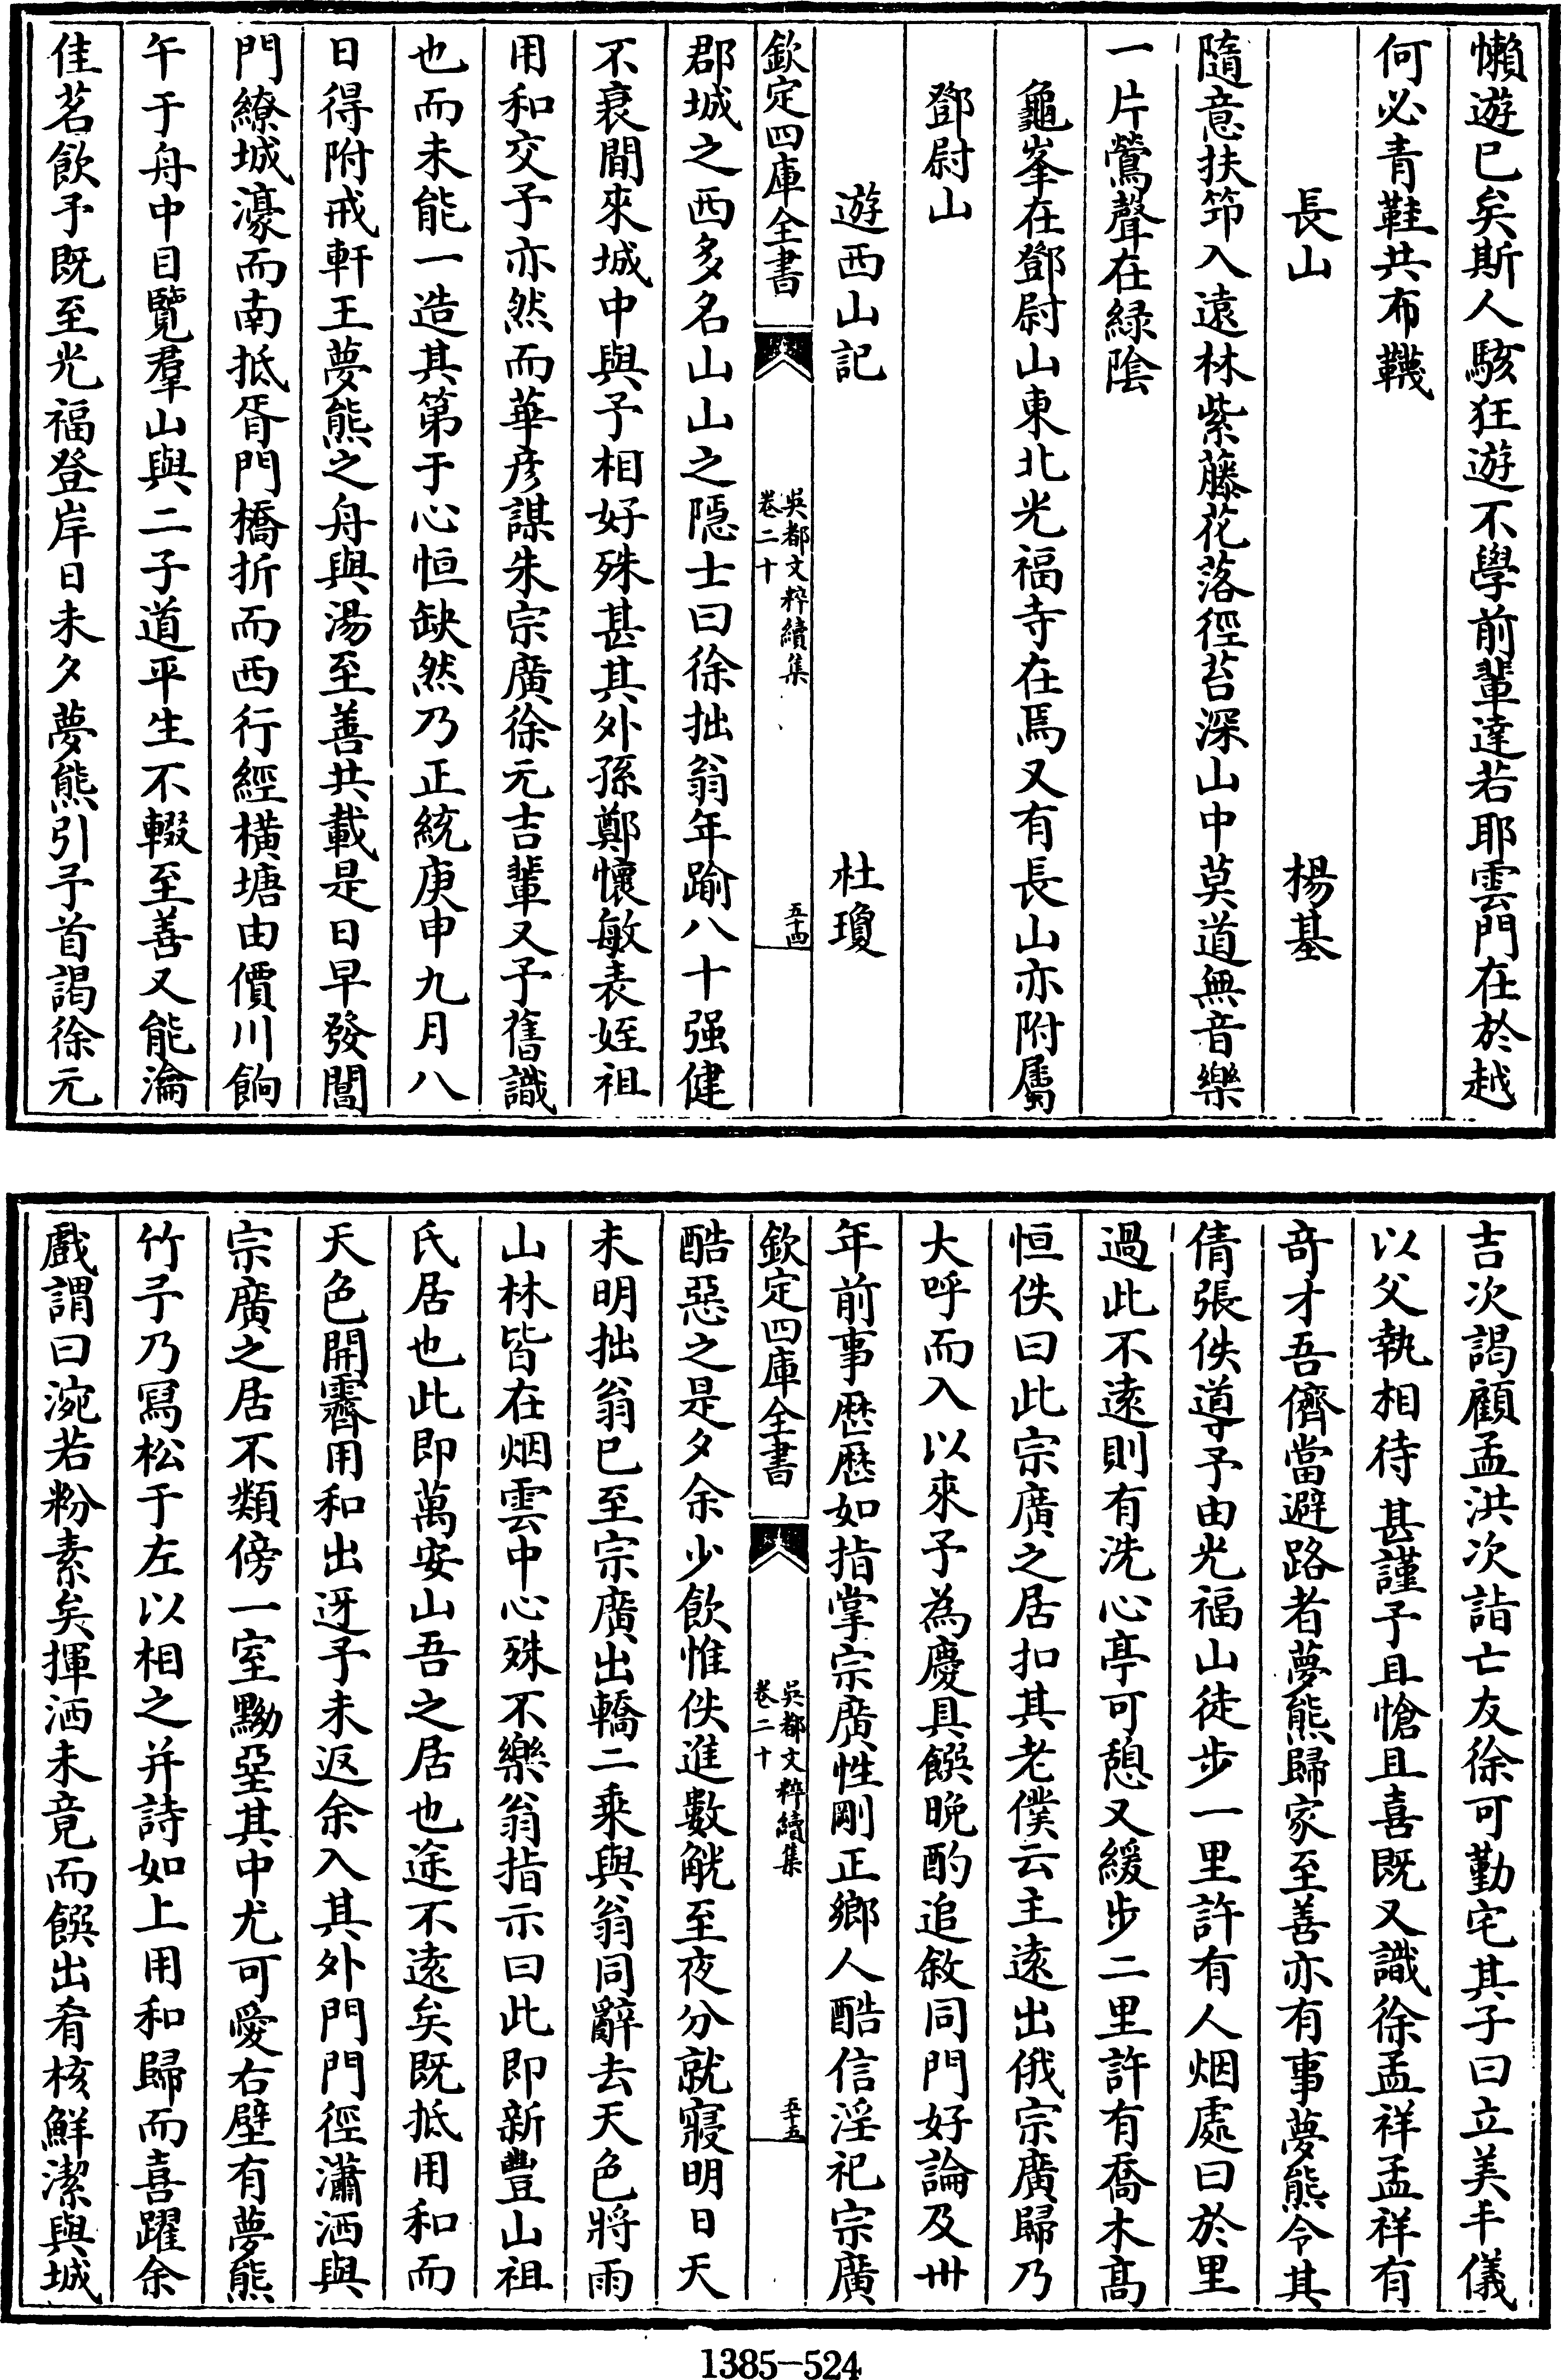 懶遊已矣斯人駭狂遊不學前輩達若耶雲門在於越
何必青鞋共布韈
長山　楊基
隨意扶筇入遠林紫藤花落徑苔深山中莫道無音樂
一片鶯聲在緑陰
龜峯在鄧尉山東北光福寺在焉又有長山亦附屬
鄧尉山
遊西山記　杜瓊
欽定四庫全書　吳都文粹續集 卷二十　五十四
郡城之西多名山山之隠士曰徐拙翁年踰八十强健
不衰間來城中與予相好殊甚其外孫鄭懷敏表姪祖
用和交予亦然而華彦謀朱宗廣徐元吉輩又予舊識
也而未能一造其第于心恒缺然乃正統庚申九月八
日得附戒軒王夢熊之舟與湯至善共載是日早發閶
門繚城濠而南抵胥門橋折而西行經橫塘由價川餉
午于舟中目覽羣山與二子道平生不輟至善又能瀹
佳茗飲予既至光福登岸日未夕夢熊引予首謁徐元
吉次謁顧孟洪次詣亡友徐可勤宅其子曰立美丰儀
以父執相待甚謹予且愴且喜既又識徐孟祥孟祥有
竒才吾儕當避路者夢熊歸家至善亦有事夢熊令其
倩張佚導予由光福山徒步一里許有人烟處曰於里
過此不遠則有洗心亭可憩又緩步二里許有喬木髙
恒佚曰此宗廣之居扣其老僕云主遠出俄宗廣歸乃
大呼而入以來予為慶具饌晚酌追敘同門好論及卅
年前事歴歴如指掌宗廣性剛正鄉人酷信淫祀宗廣
欽定四庫全書　吳都文粹續集 卷二十　五十五
酷惡之是夕余少飲惟佚進數觥至夜分就寢明日天
未明拙翁已至宗廣出轎二乘與翁同辭去天色將雨
山林皆在烟雲中心殊不樂翁指示曰此即新豐山祖
氏居也此即萬安山吾之居也途不遠矣既抵用和而
天色開霽用和出迓予未返余入其外門門徑瀟洒與
宗廣之居不類傍一室黝堊其中尤可愛右壁有夢熊
竹予乃冩松于左以相之并詩如上用和歸而喜躍余
戲謂曰涴若粉素矣揮洒未竟而饌出肴核鮮潔與城
1385-524